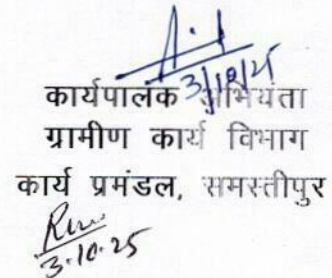 3/10/25
कार्यपालक अभियंता
ग्रामीण कार्य विभाग
कार्य प्रमंडल, समस्तीपुर
3.10.25